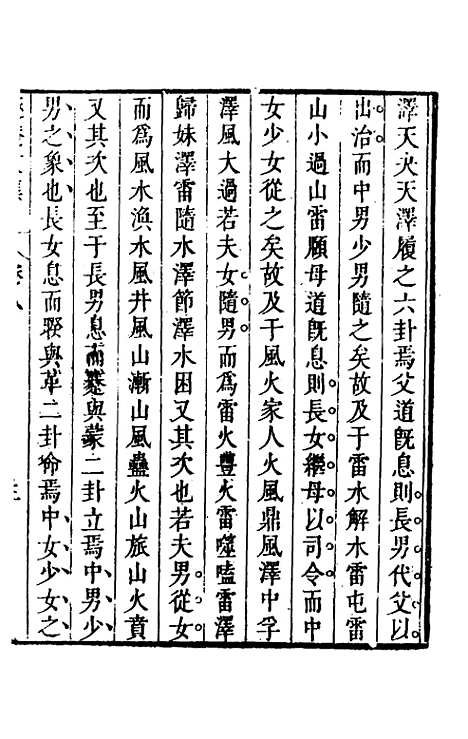 澤天夬天澤履之六卦焉父道旣息則長男代父以
出治而中男少男隨之矣故及于雷水解水雷屯雷
山小過山雷頤母道旣息則長女繼母以司令而中
女少女從之矣故及于風火家人火風鼎風澤中孚
澤風大過若夫女隨男而爲雷火豐火雷噬嗑雷澤
歸妹澤雷隨水澤節澤水困又其次也若夫男從女
而爲風水渙水風井風山漸山風蠱火山旅山火賁
又其次也至于長男息而蹇與蒙二卦立焉中男少
男之象也長女息而睽與革二卦命焉中女少女之